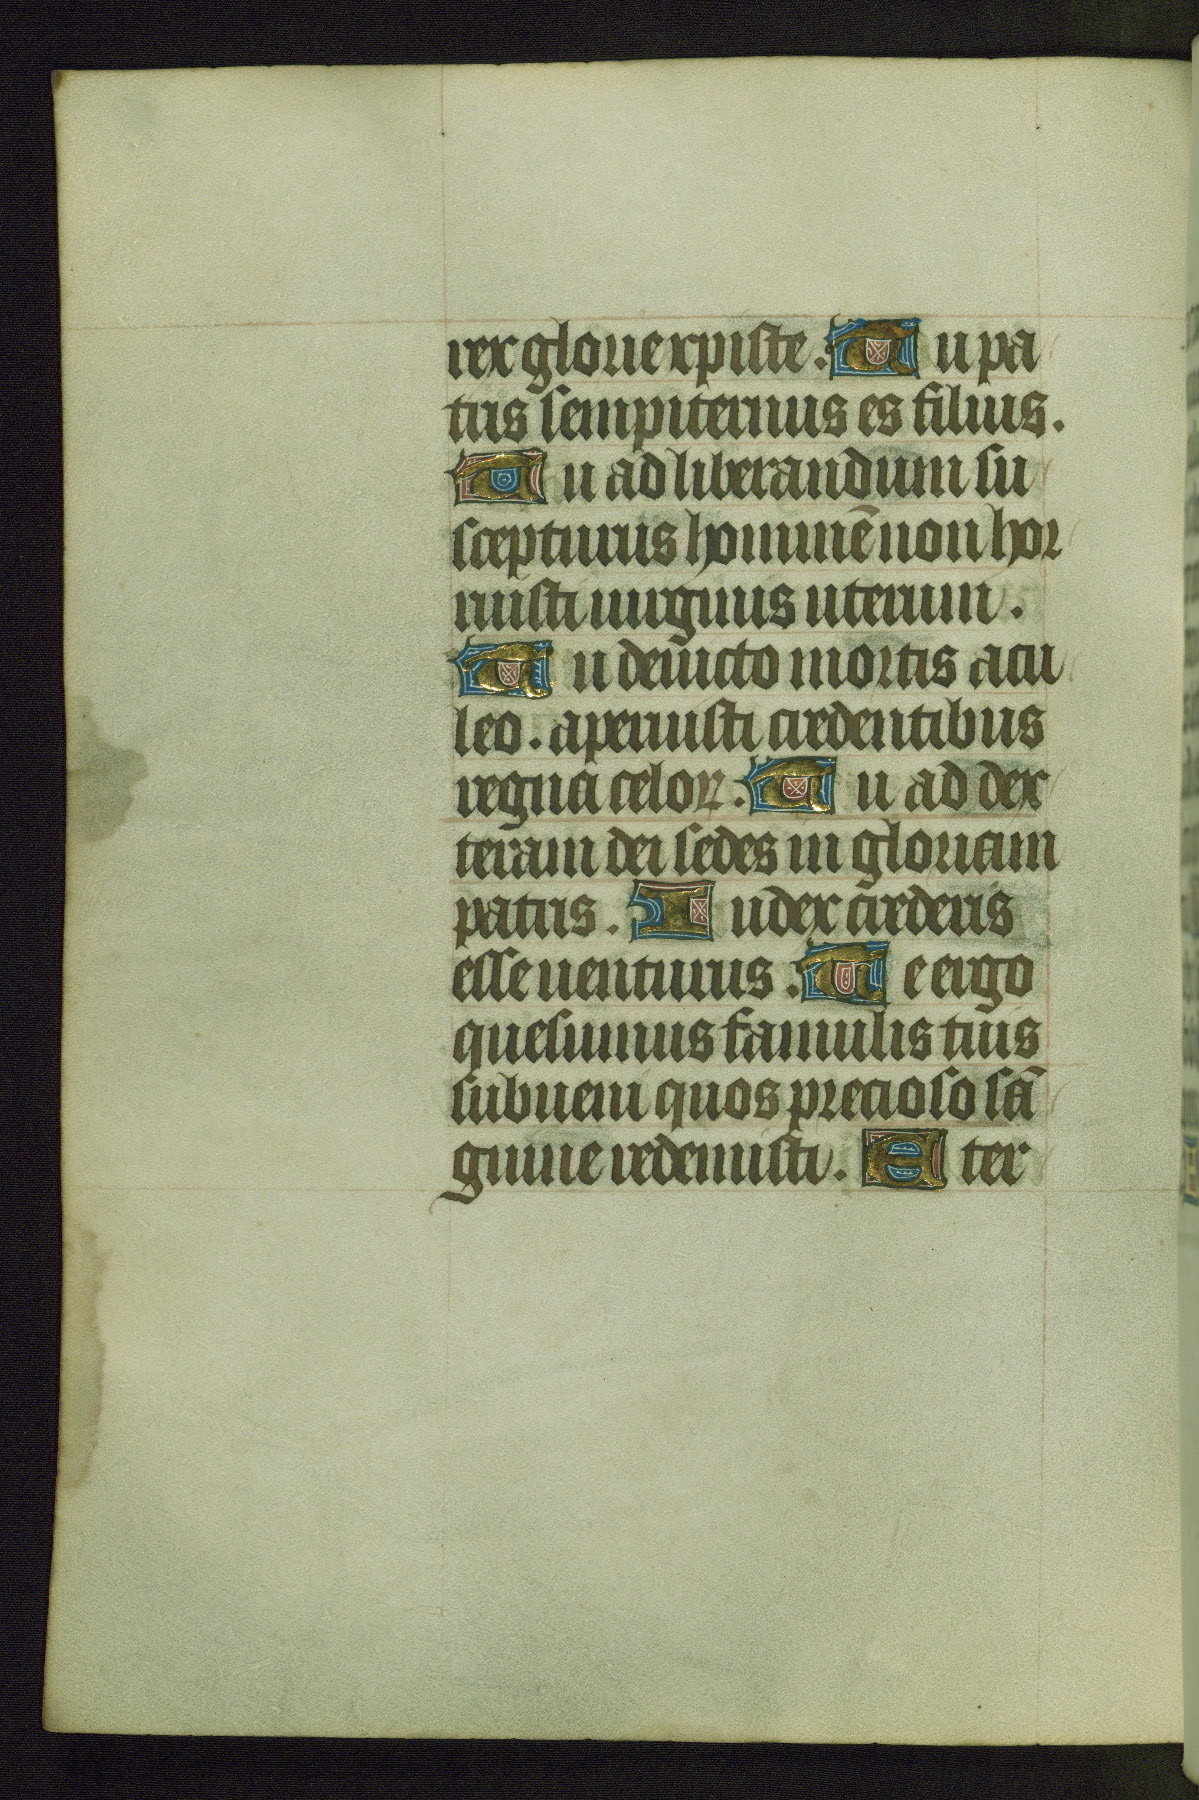 rex glorie xpiste. Tu pa
tris sempiternus es filius.
Tu ad liberandum su
scepturus hominē non hor
ruisti uirginis uterum.
Tu deuicto mortis acu
leo. aperuisti credentibus
regna celoꝝ. Tu ad dex
teram dei sedes in gloriam
patris. Iudex crederis
esse uenturus. Te ergo
quesumus famulis tuis
subueni quos precioso sā
guine redemisti. Eter